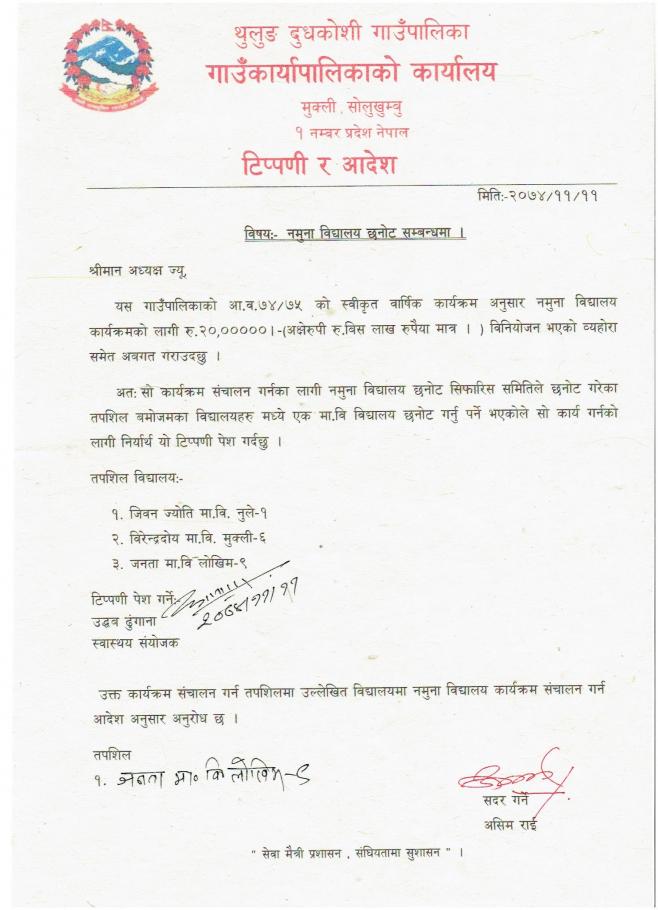 थुलुङ दुधकोशी गाउँपालिका
गाउँकार्यापालिकाको कार्यालय
मुक्ली, सोलुखुम्बु
१ नम्बर प्रदेश नेपाल
टिप्पणी र आदेश
मितिः-२०७४/११/११
विषयः- नमुना विद्यालय छनोट सम्बन्धमा ।
श्रीमान अध्यक्ष ज्यू,
यस गाउँपालिकाको आ.व.७४/७५ को स्वीकृत वार्षिक कार्यक्रम अनुसार नमुना विद्यालय
कार्यक्रमको लागी रु.२०,०००००।-(अक्षेरुपी रु.बिस लाख रुपैया मात्र । ) विनियोजन भएको व्यहोरा
समेत अवगत गराउदछु ।
अतः सो कार्यक्रम संचालन गर्नका लागी नमुना विद्यालय छनोट सिफारिस समितिले छनोट गरेका
तपशिल बमोजमका विद्यालयहरु मध्ये एक मा.वि विद्यालय छनोट गर्नु पर्ने भएकोले सो कार्य गर्नको
लागी निर्यार्थ यो टिप्पणी पेश गर्दछु ।
तपशिल विद्यालयः-
१. जिवन ज्योति मा.वि. नुले-१
२. बिरेन्द्रदोय मा.वि. मुक्ली-६
३. जनता मा.वि लोखिम-९
टिप्पणी पेश गर्नेः-
२०७४/११/११
उद्धव ढुंगाना
स्वास्थय संयोजक
उक्त कार्यक्रम संचालन गर्न तपशिलमा उल्लेखित विद्यालयमा नमुना विद्यालय कार्यक्रम संचालन गर्न
आदेश अनुसार अनुरोध छ ।
तपशिल
१. जनता मा॰ वि लोखिम-९
सदर गर्ने
असिम राई
" सेवा मैत्री प्रशासन , संघियतामा सुशासन " ।